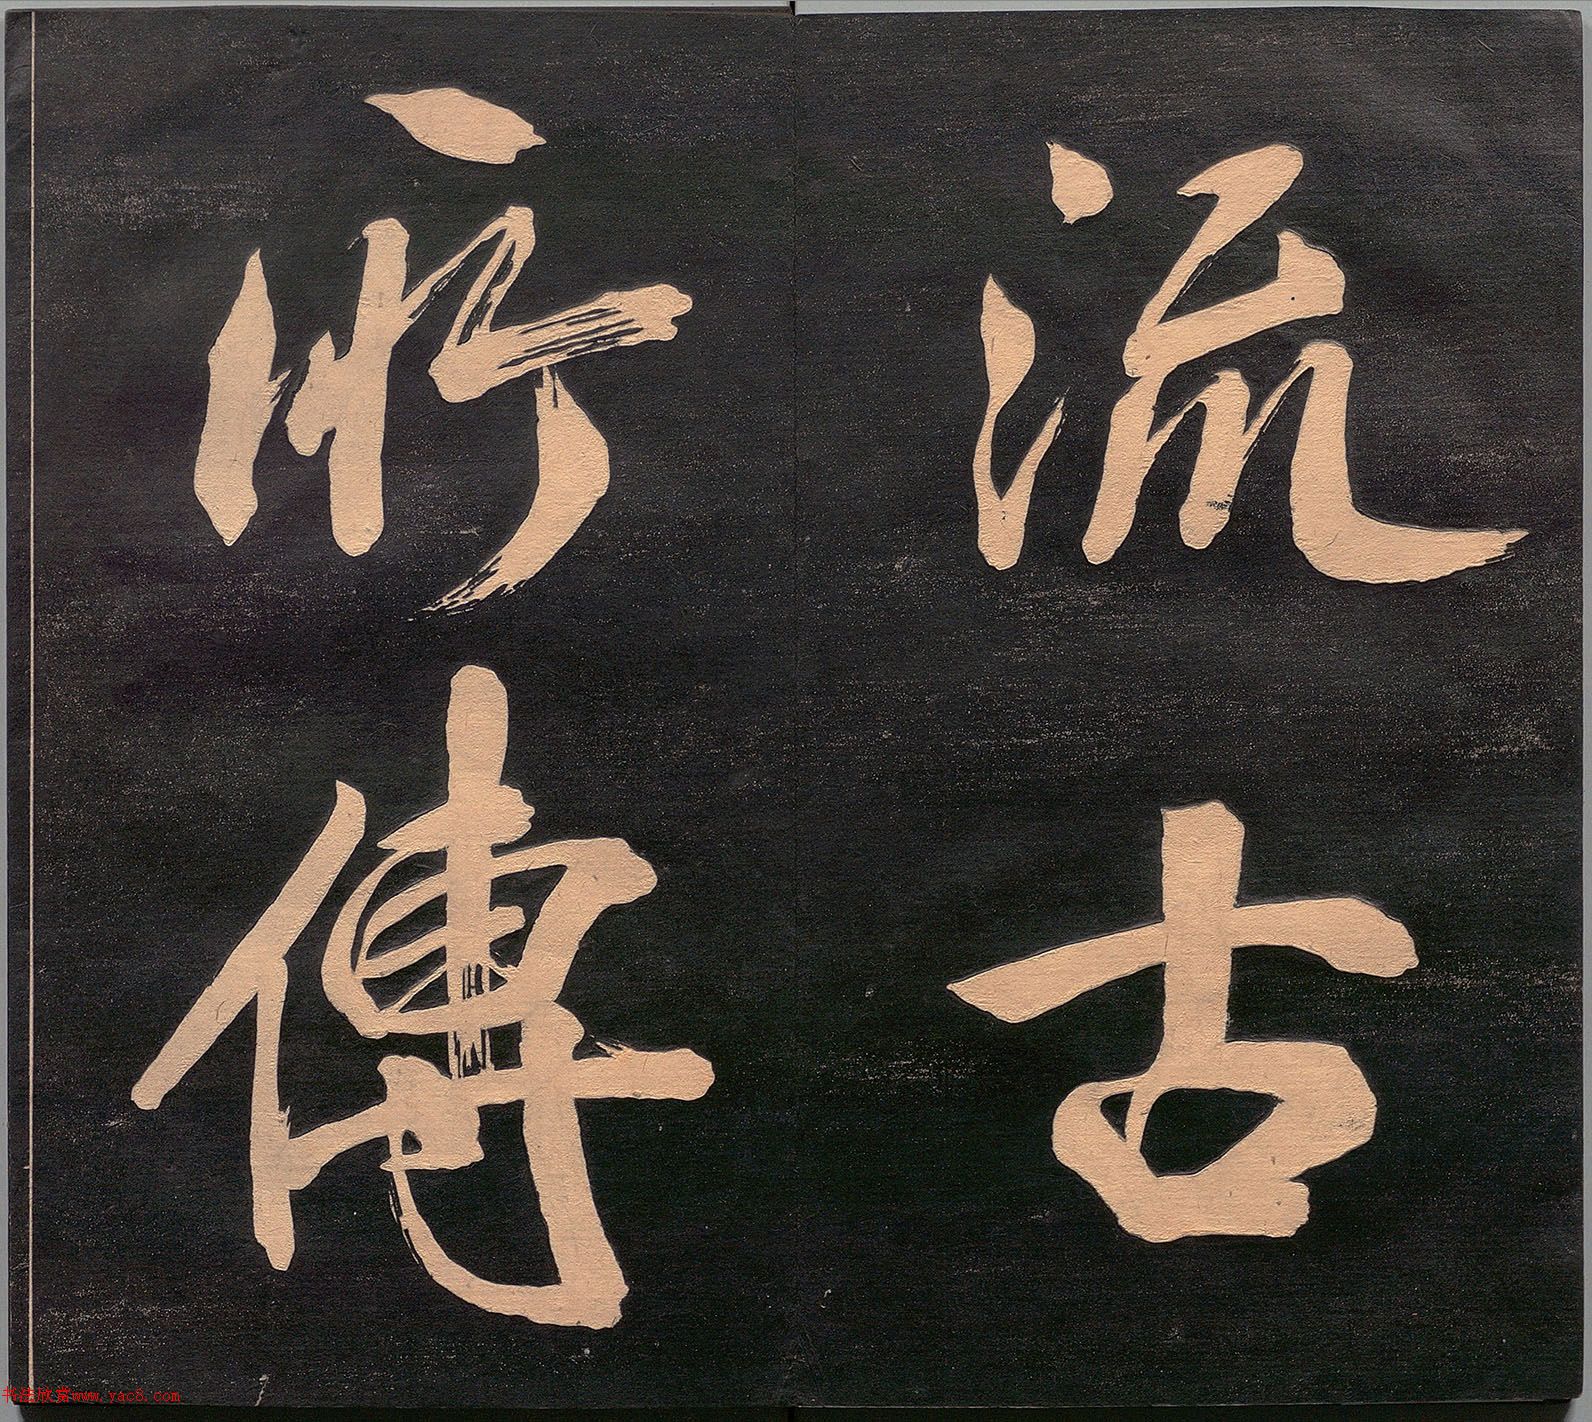 流古
所傳
书法欣赏www.yac8.com